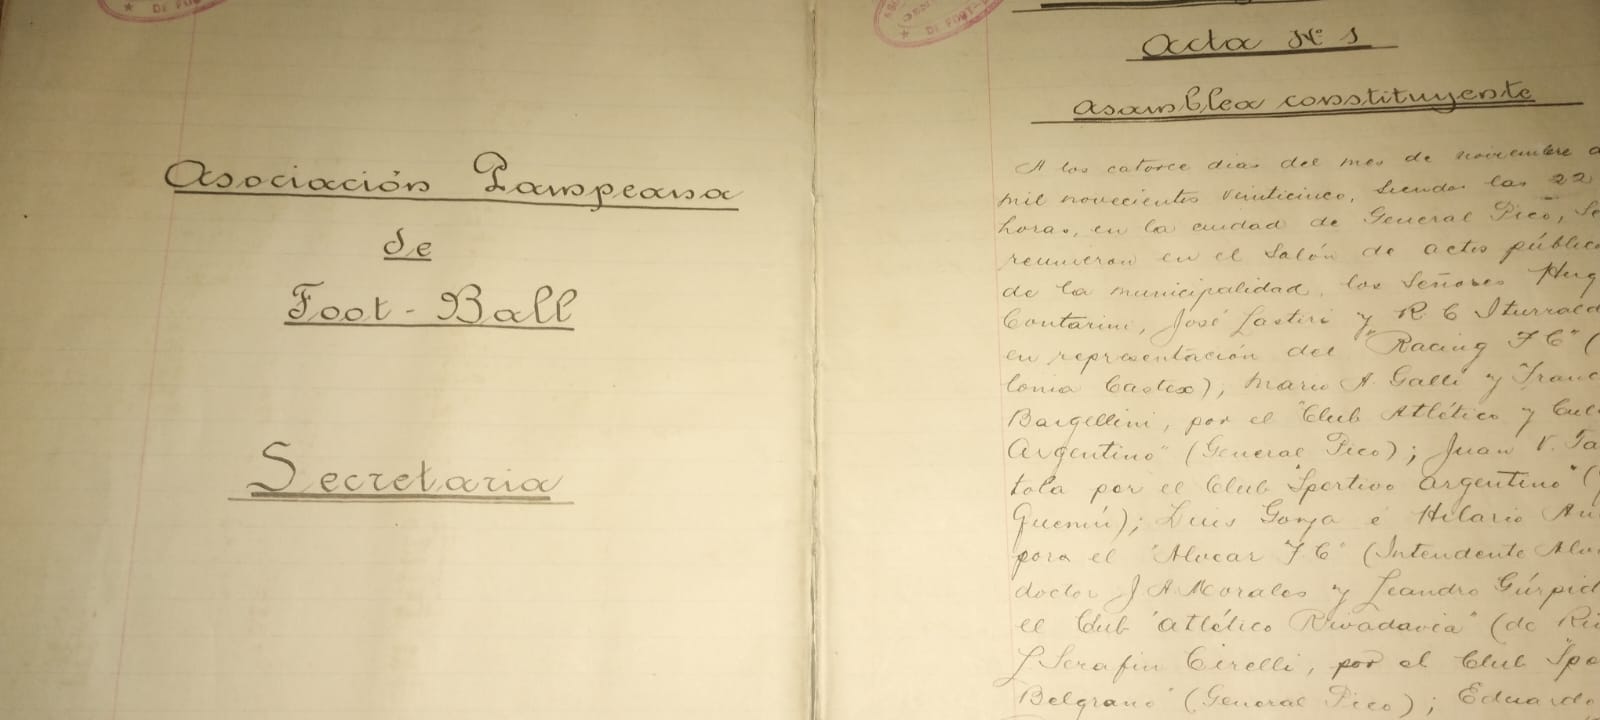 DE FOOT
Asociación Pampeana
de
Foot-Ball
Secretaria
DE FOOT-
Acta Nº 1
Asamblea constituyente
A los catorce dias del mes de noviembre d
mil novecientos veinticinco, siendo las 22
horas, en la ciudad de General Pico, se
reunieron en el Salón de actos público
de la municipalidad, los Señores Hug
Contarini, José Lastiri y R C Iturrald
en representación del "Racing F C" (
lonia Castex); Mario A. Galli y Franc
Bargellini, por el "Club Atlético y Cul
Argentino" (General Pico); Juan V. Ta
tola por el Club "Sportivo Argentino" (
Quemú); Luis Gonza é Hilario An
pora el "Alvear F C" (Intendente Alv
doctor J A Morales y Leandro Gúrpid
el Club "Atlético Rivadavia" (de Ri
J Serafin Cirelli, por el Club "Spo
Belgrano" (General Pico); Eduardo